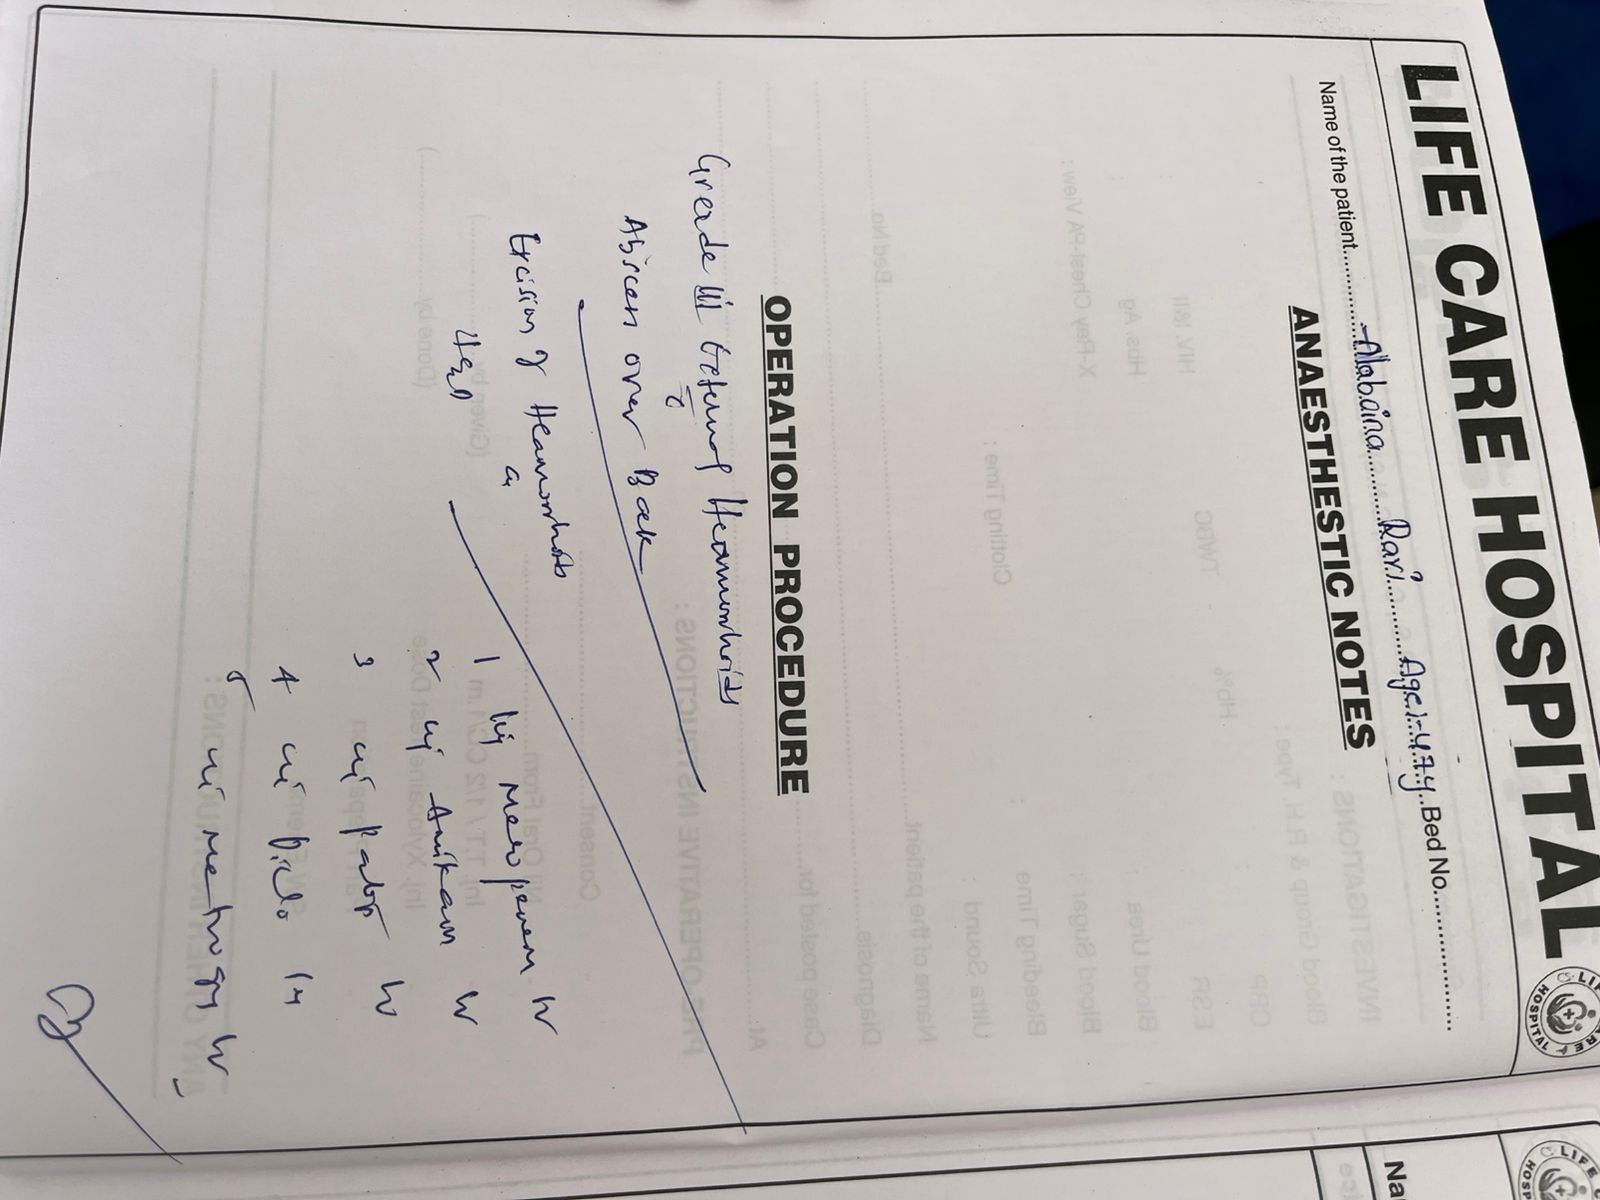 LIFE CARE HOSPITAL
LIFE CARE HOSPITAL
Name of the patient Allabaina Rari Age:-47y Bed No.
ANAESTHESTIC NOTES
OPERATION PROCEDURE
Grade III External Heamorrhoids
c̄
Abscess over Back
Excision of Heamorrhoids
1 Inj Meropenem IV
2 inj Amikacin IV
3 inj Pantop IV
4 inj Diclo IM
5 inj Metrogyl IV
Na